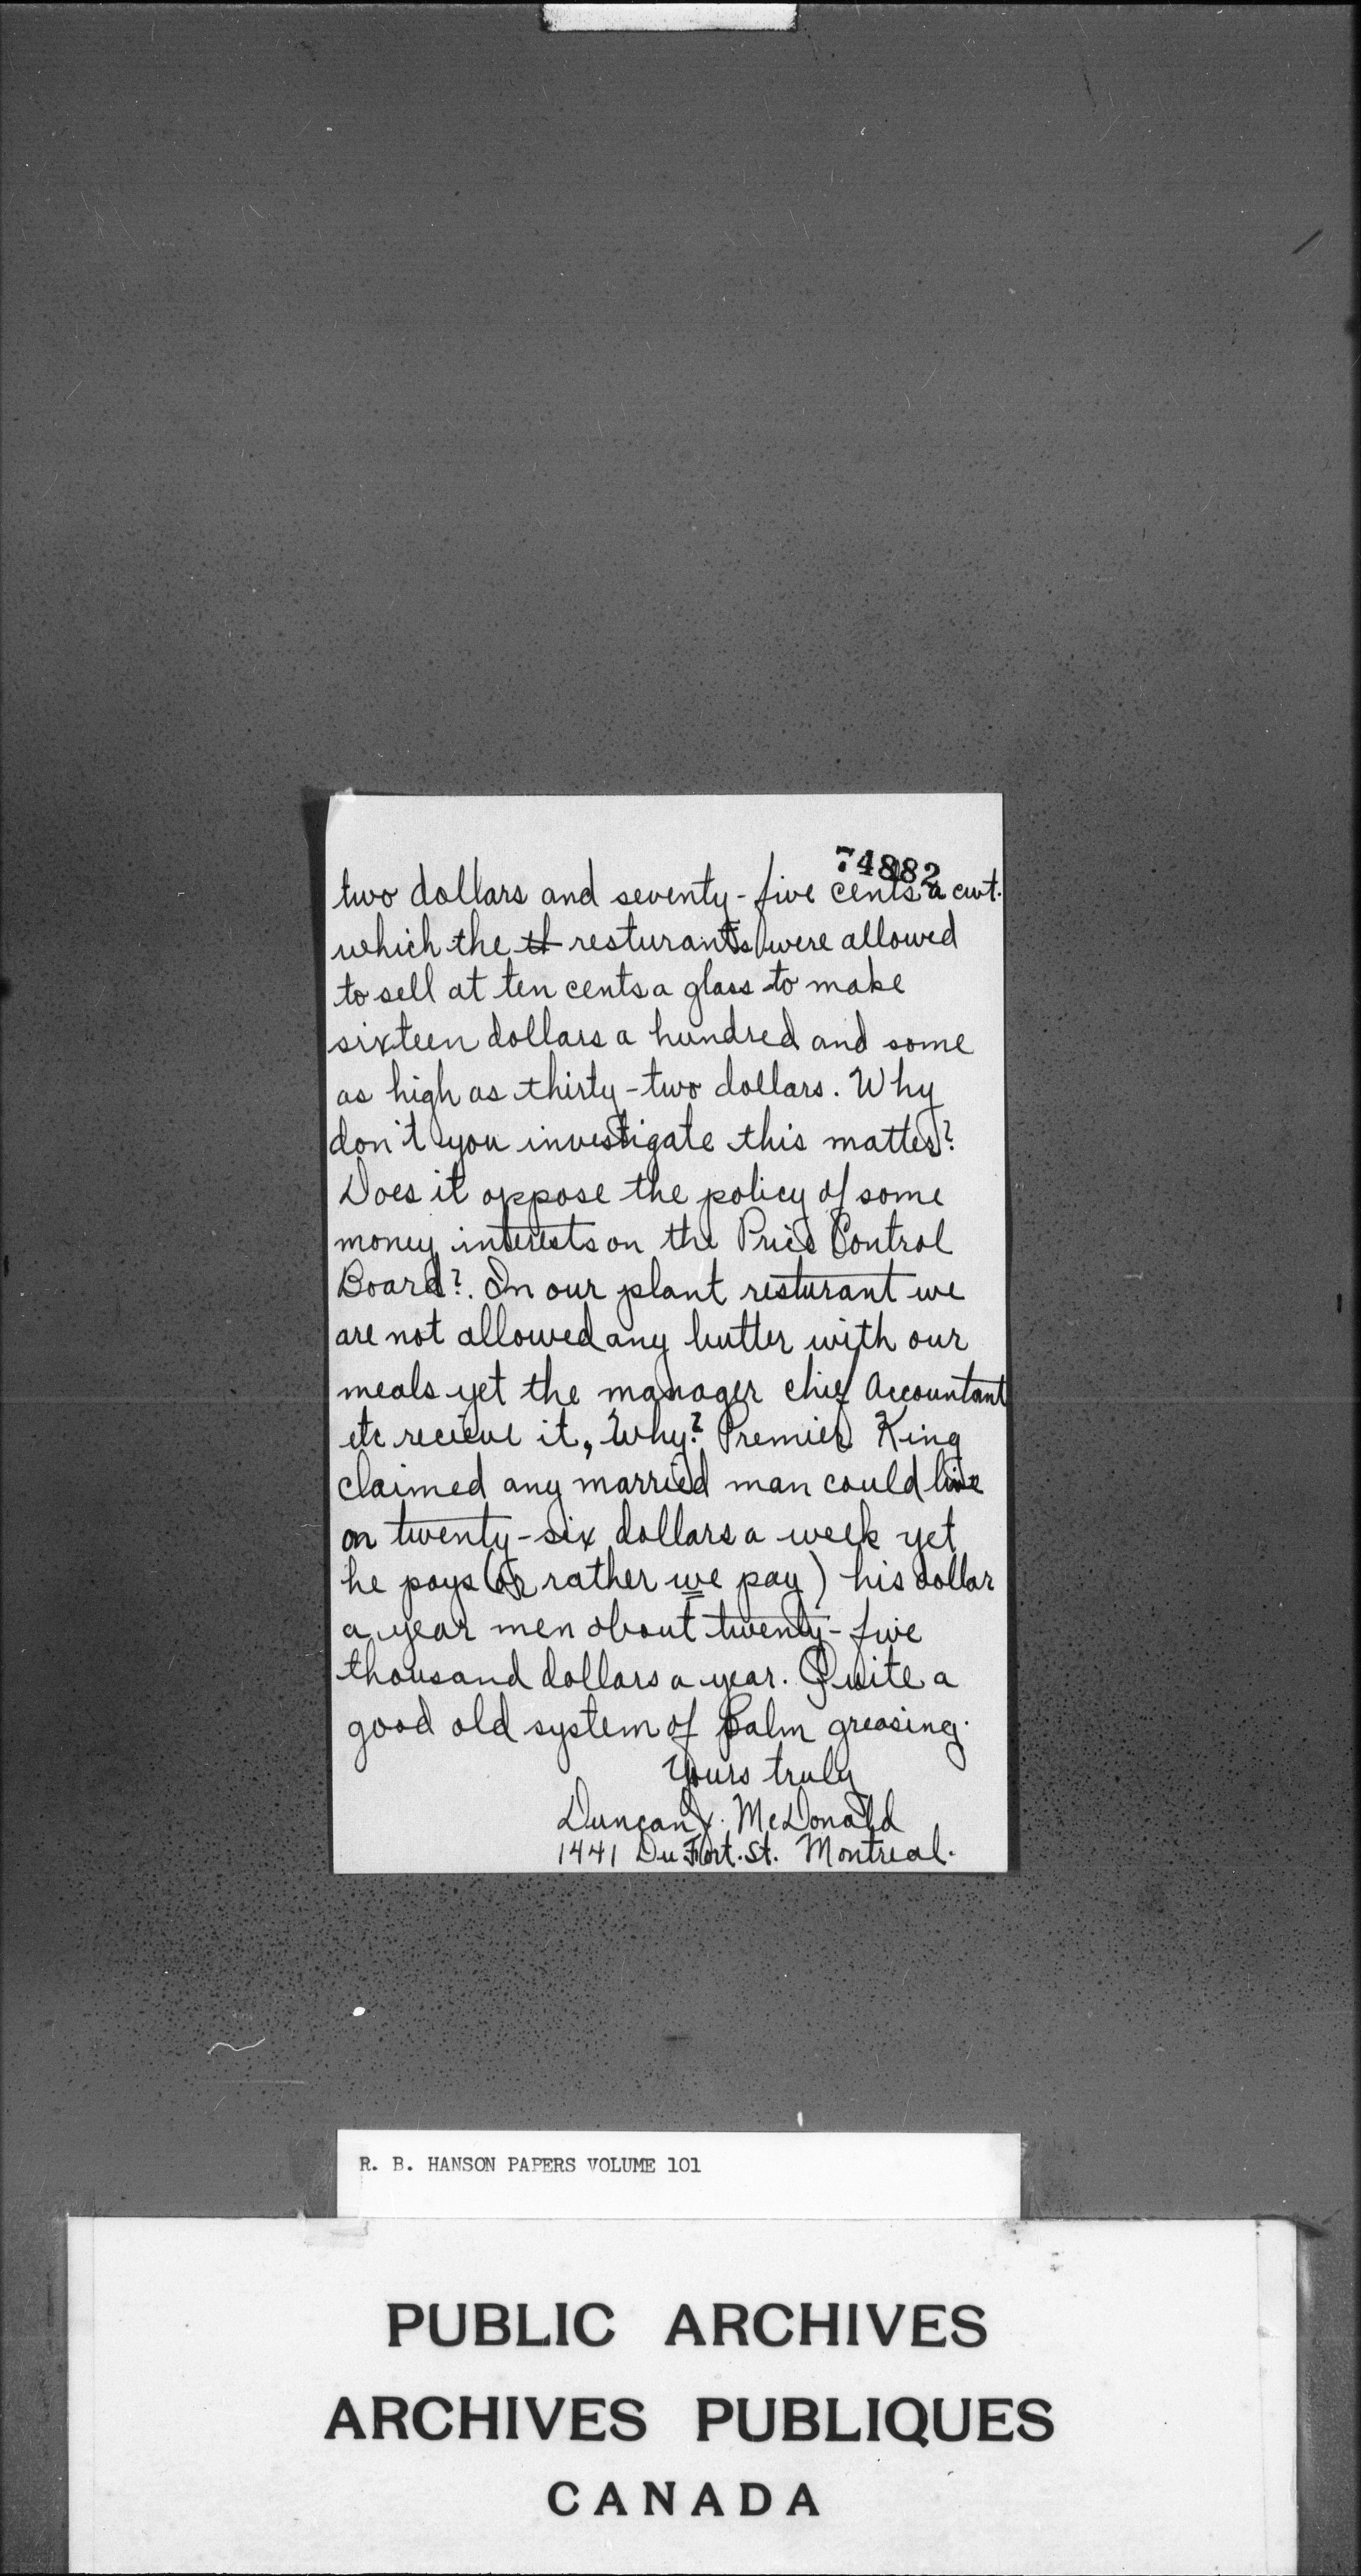 74882
two dollars and seventy-five cents a cwt.
which the resturants were allowed
to sell at ten cents a glass to make
sixteen dollars a hundred and some
as high as thirty-two dollars. Why
don't you investigate this matter?
Does it oppose the policy of some
money interests on the Price Control
Board?. In our plant resturant we
are not allowed any butter with our
meals yet the manager chief Accountant
etc recieve it, Why? Premier King
claimed any married man could live
on twenty-six dollars a week yet
he pays (or rather we pay) his dollar
a year men about twenty-five
thousand dollars a year. Quite a
good old system of palm greasing.
Yours truly
Duncan McDonald
1441 Du Fort. St. Montreal.
R. B. HANSON PAPERS VOLUME 101
PUBLIC ARCHIVES
ARCHIVES PUBLIQUES
CANADA